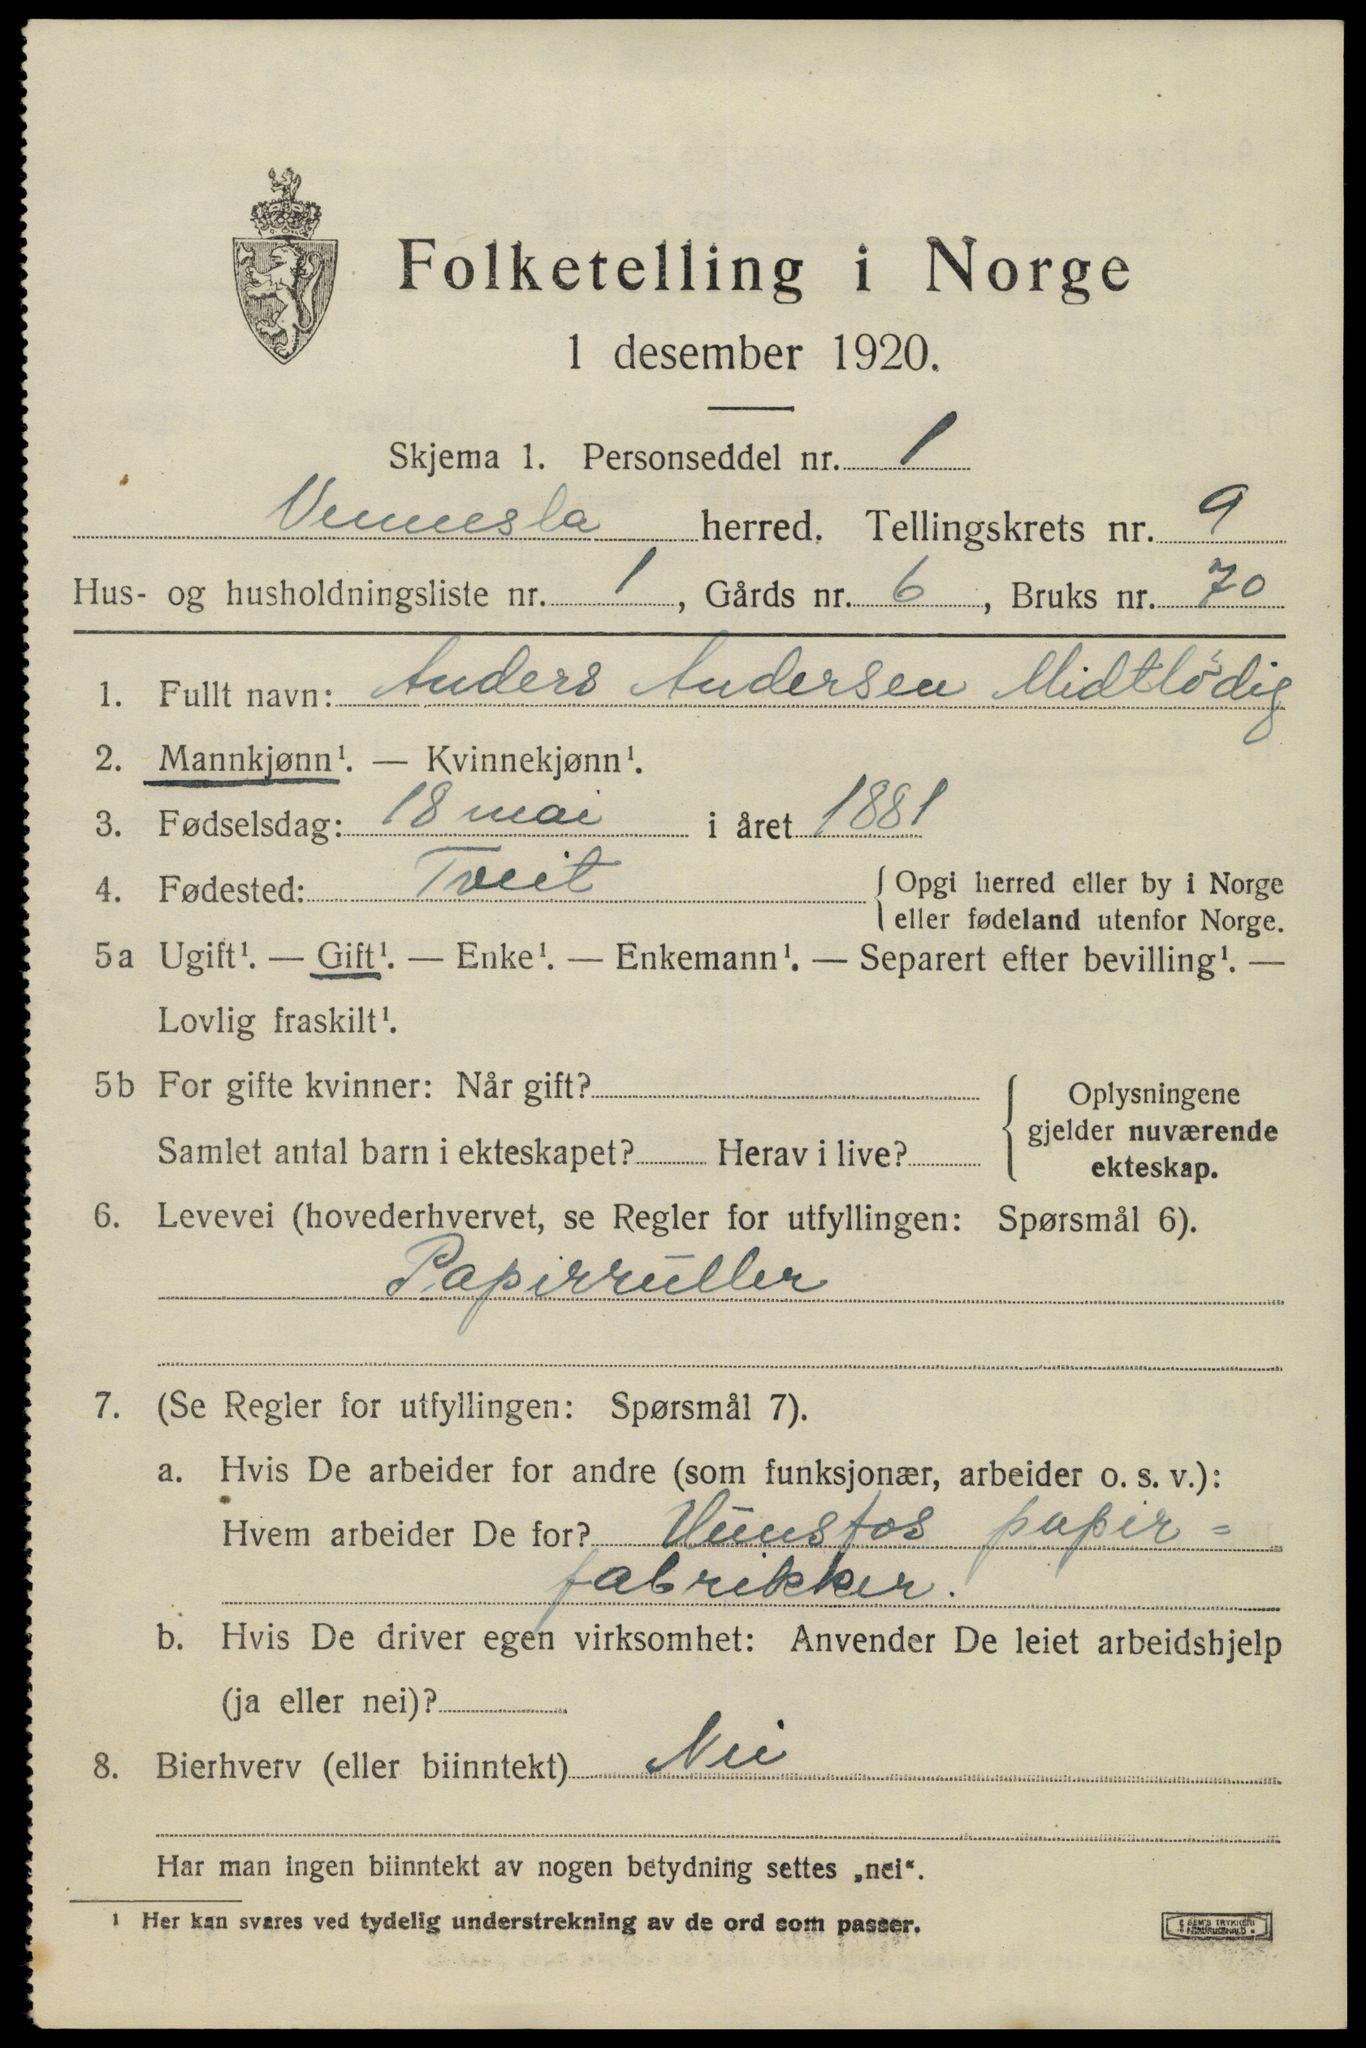 Folketelling i Norge
1 desember 1920.
Skjema 1. Personseddel nr. 1
Vennesla herred. Tellingskrets nr. 9
Hus- og husholdningsliste nr. 1, Gårds nr. 6, Bruks nr. 70
1. Fullt navn: Anders Andersen Midtlödig
2. Mannkjønn¹. — Kvinnekjønn¹.
3. Fødselsdag: 18 mai i året 1881
4. Fødested: Tveit
Opgi herred eller by i Norge
eller fødeland utenfor Norge.
5a Ugift¹. — Gift¹. — Enke¹. — Enkemann¹. — Separert efter bevilling¹. —
Lovlig fraskilt¹.
5b For gifte kvinner: Når gift?
Samlet antal barn i ekteskapet? Herav i live?
Oplysningene
gjelder nuværende
ekteskap.
6. Levevei (hovederhvervet, se Regler for utfyllingen: Spørsmål 6).
Papirruller
7. (Se Regler for utfyllingen: Spørsmål 7).
a. Hvis De arbeider for andre (som funksjonær, arbeider o. s. v.):
Hvem arbeider De for? Hunsfos papir=
fabrikker.
b. Hvis De driver egen virksomhet: Anvender De leiet arbeidshjelp
(ja eller nei)?
8. Bierhverv (eller biinntekt) Nei
Har man ingen biinntekt av nogen betydning settes „nei“.
¹ Her kan svares ved tydelig understrekning av de ord som passer.